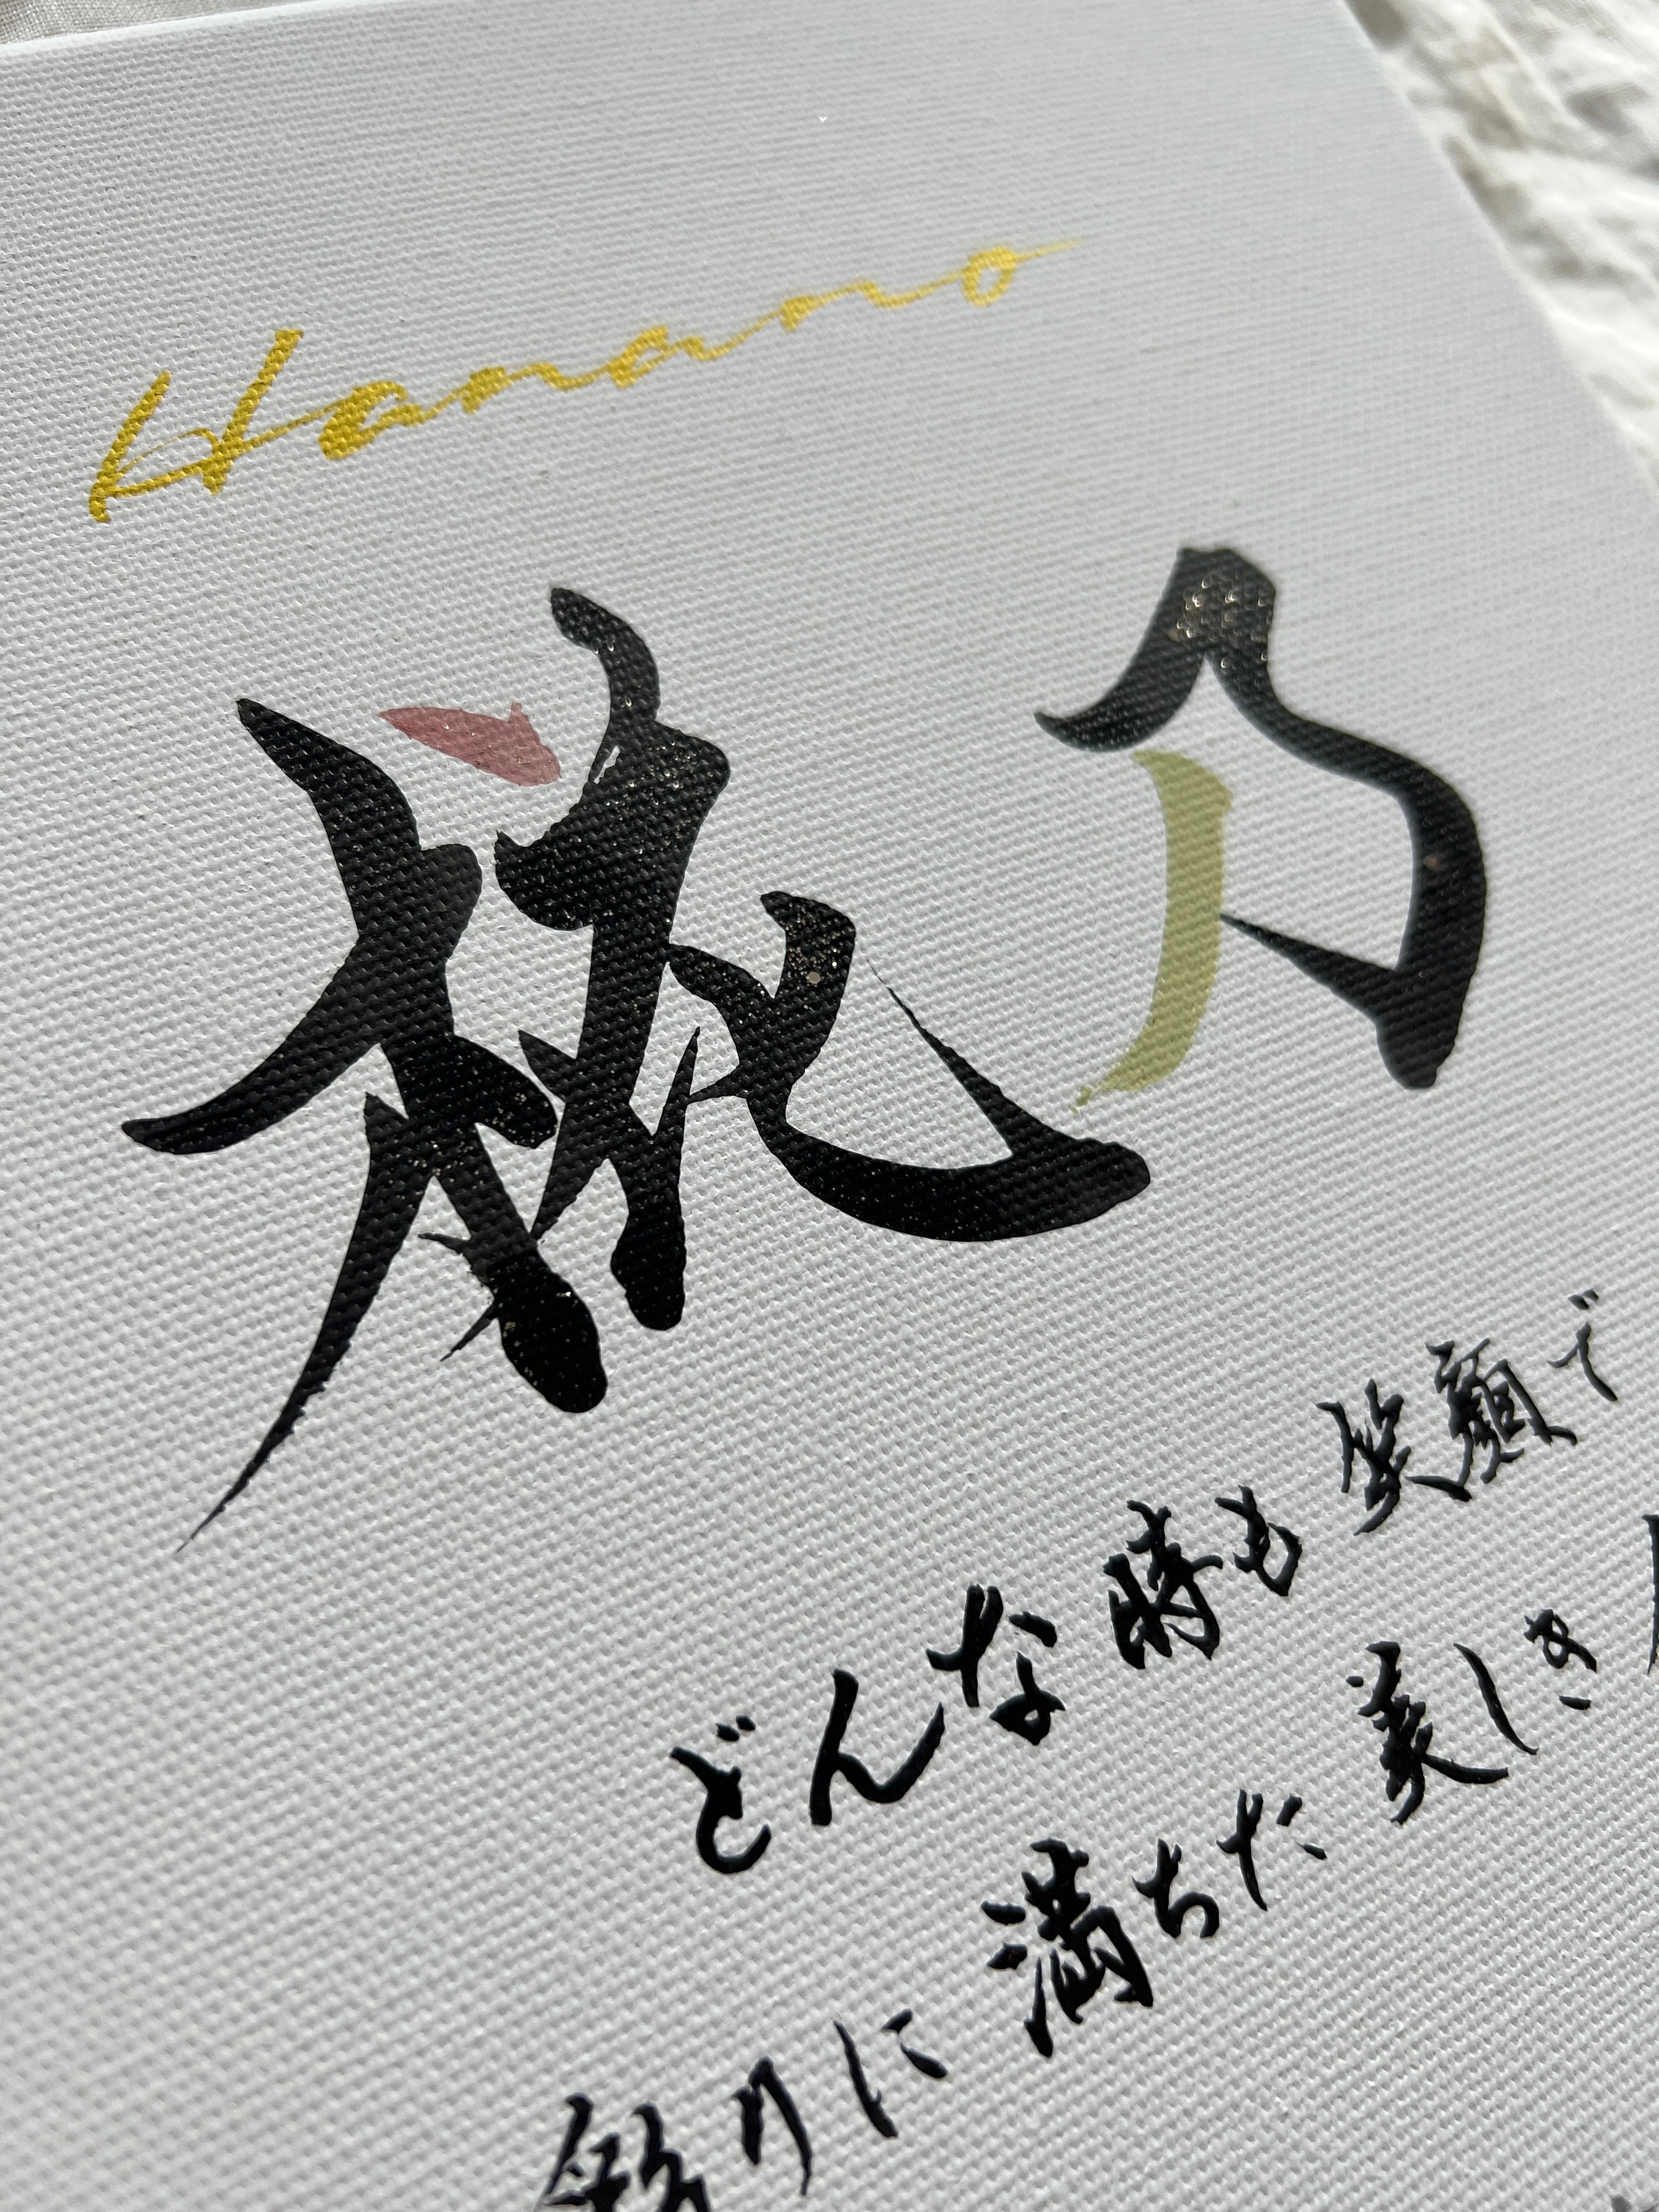 Hanano
椛乃
どんな時も笑顔で
彩りに満ちた美しき